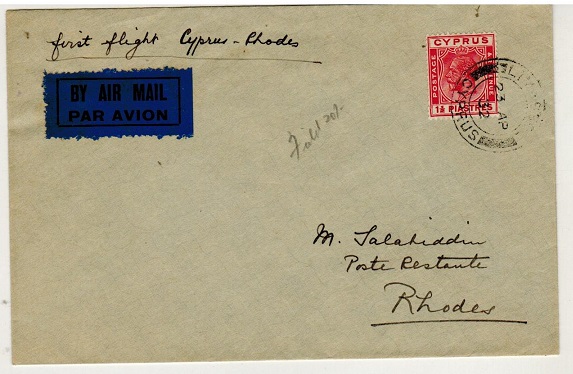 first flight Cyprus - Rhodes
BY AIR MAIL
PAR AVION
CYPRUS
POSTAGE
1½ PIASTRES
23 AP
32
CYPRUS
M. Salahiddin
Poste Restante
Rhodes